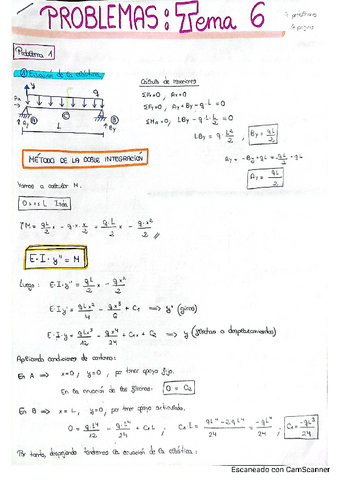 PROBLEMAS: Tema 6
Problema 1
Ⓐ Ecuación de la elástica
Cálculo de reacciones
ΣFx=0, Ax=0
ΣFy=0, Ay + By - q·L = 0
ΣMA=0, LBy - q·L·L/2 = 0
LBy = q·L²/2, By = qL/2
Ay = -By + qL =
Ay = qL/2
MÉTODO DE LA DOBLE INTEGRACIÓN
Vamos a calcular M.
0 ≤ x ≤ L
M = qL/2 x - q·x·x/2 = q·L/2 x - q·x²/2
E·I·y'' = M
Luego: E·I·y'' = qL/2 x - qx²/2
E·I·y' = qLx²/4 - qx³/6 + C1 ⟹ y' (giros)
E·I·y = qLx³/12 - qx⁴/24 + C1x + C2 ⟹ y (flechas o desplazamientos)
Aplicando condiciones de contorno:
En A ⟹ x=0, y=0, por tener apoyo fijo.
En la ecuación de las flechas: 0 = C2
En B ⟹ x=L, y=0, por tener apoyo articulado.
0 = q·L⁴/12 - q·L⁴/24 + C1L, C1·L = qL⁴ - 2qL⁴/24 = -qL⁴/24, C1 = -qL³/24
Por tanto, despejando tendremos la ecuación de la elástica:
Escaneado con CamScanner